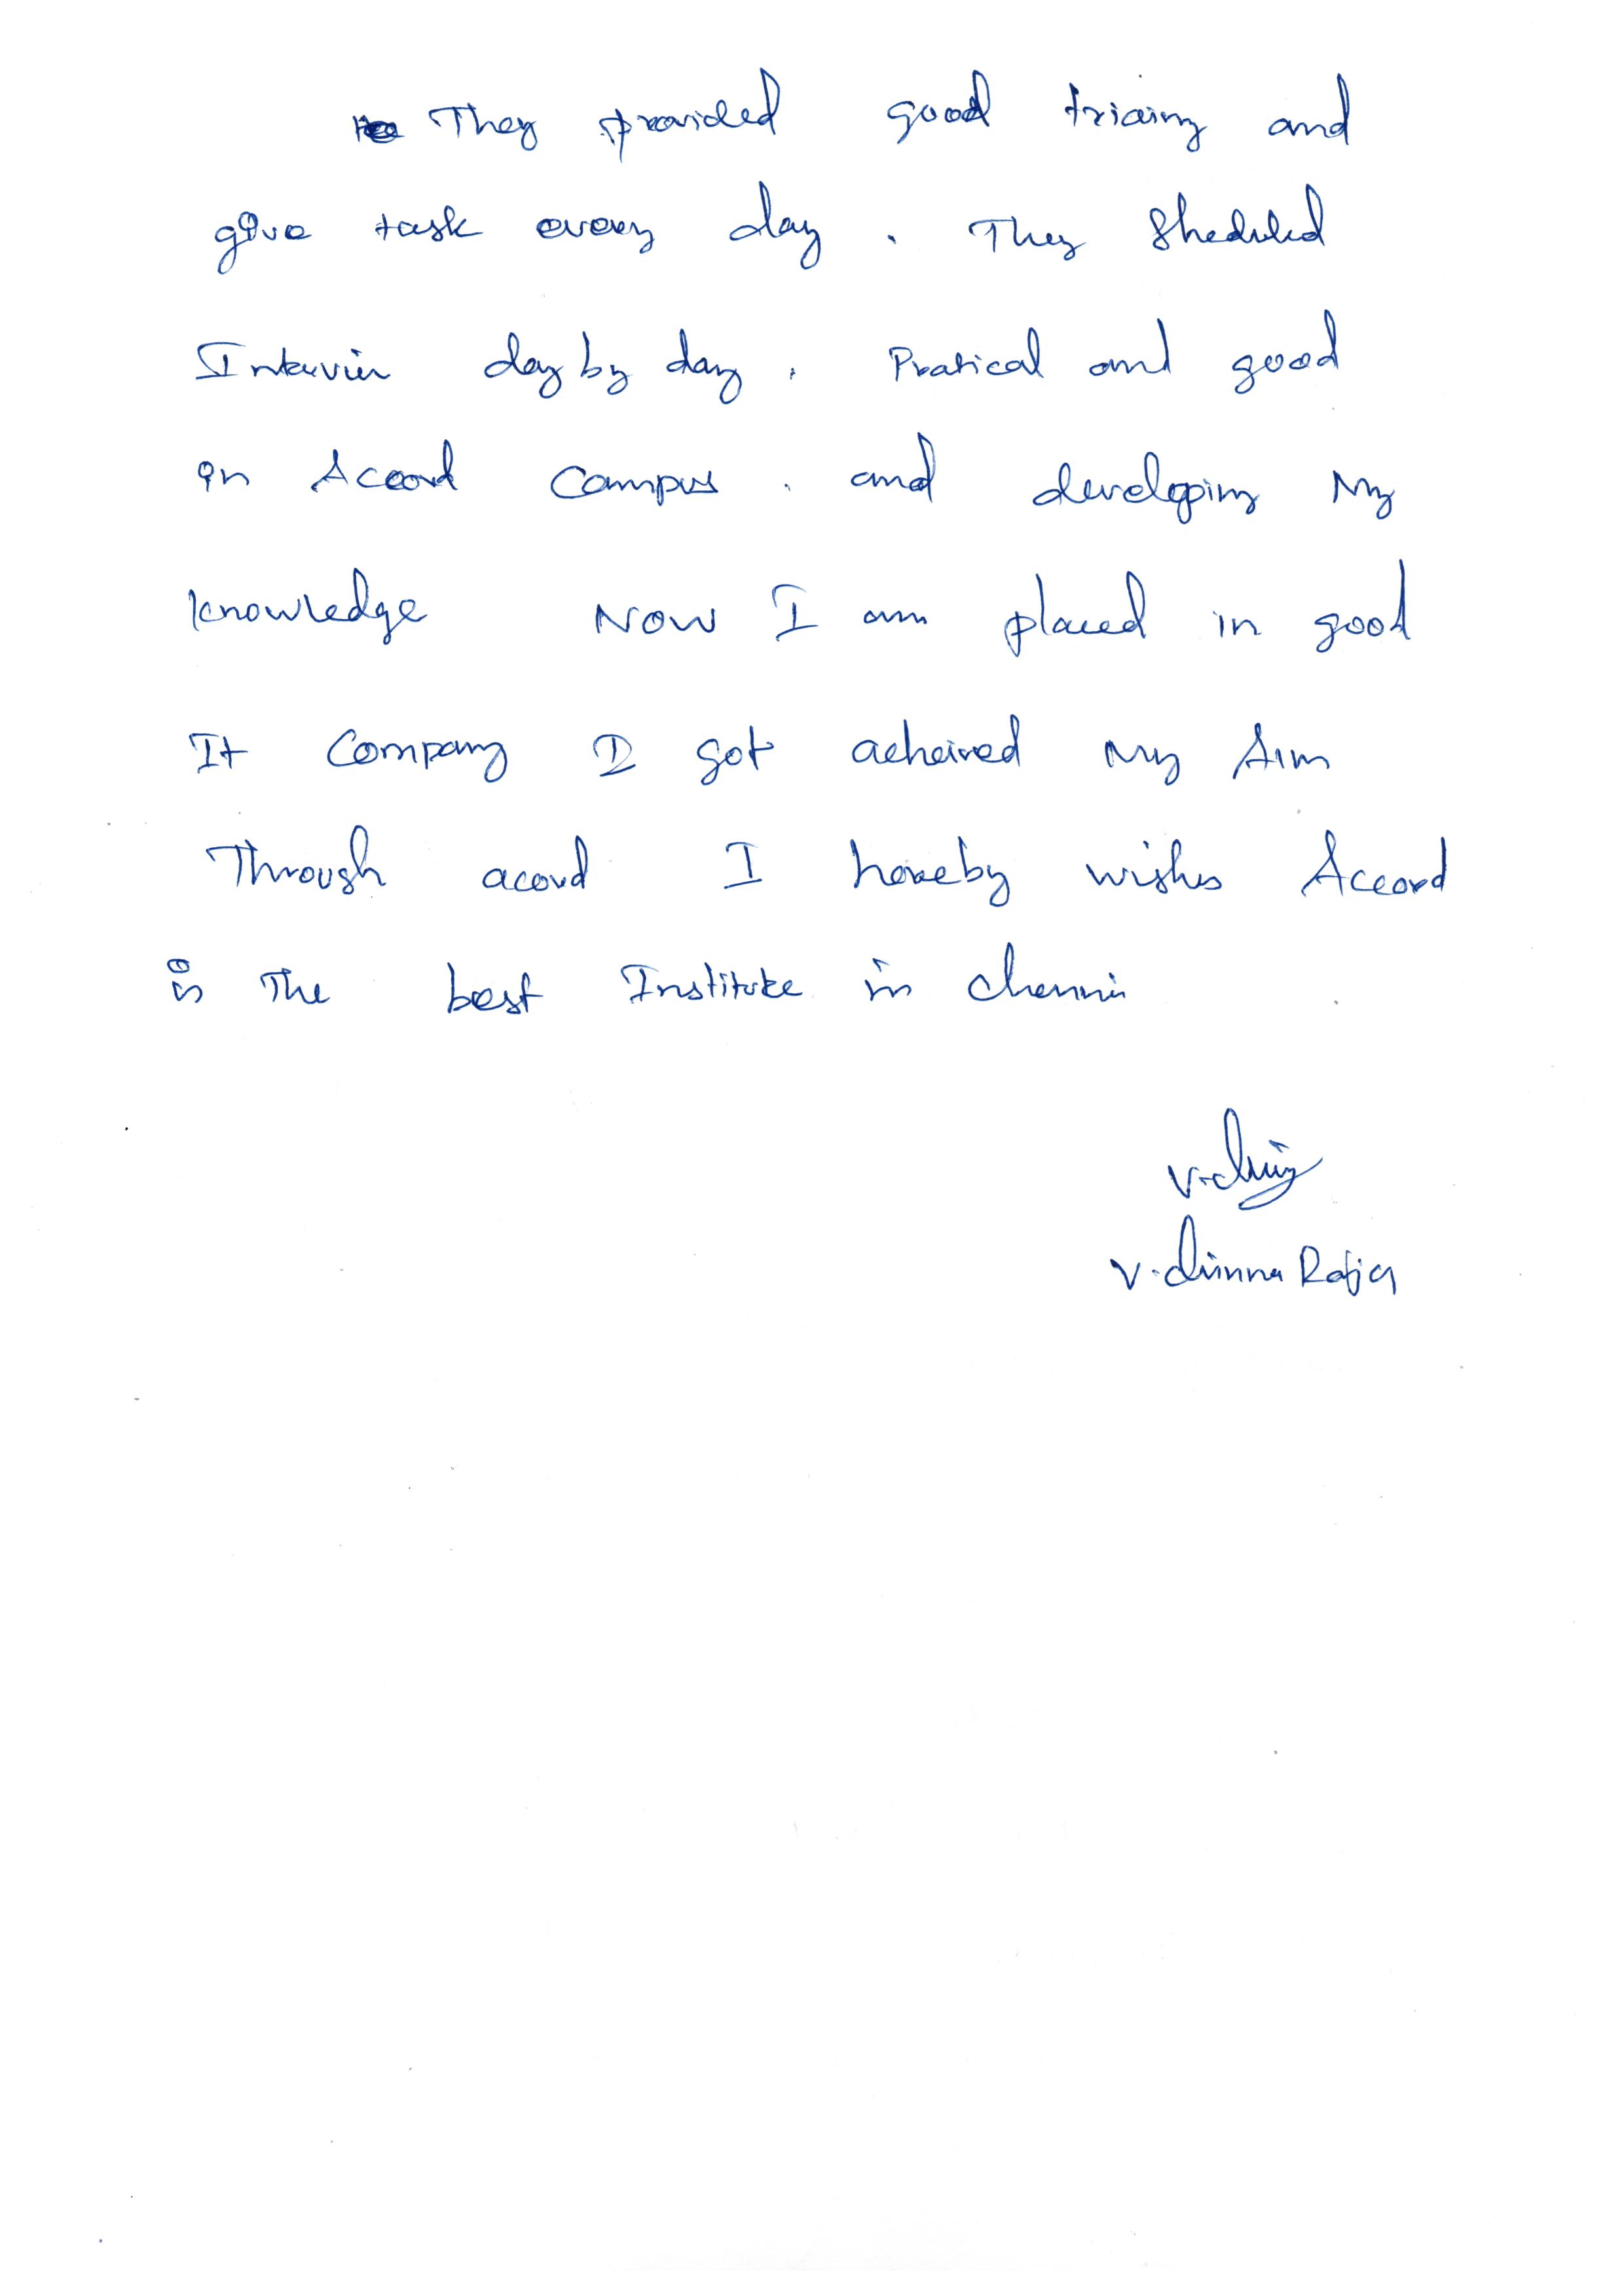 They provided good triaing and
give task every day . They Sheduled
Interviw day by day . Pratical and good
in Accord Campus . and developing My
knowledge Now I am placed in good
It Company I got acheived My Aim
Through acord I hereby wishes Accord
is The best Institute in Chennai
V. Chinna Raja